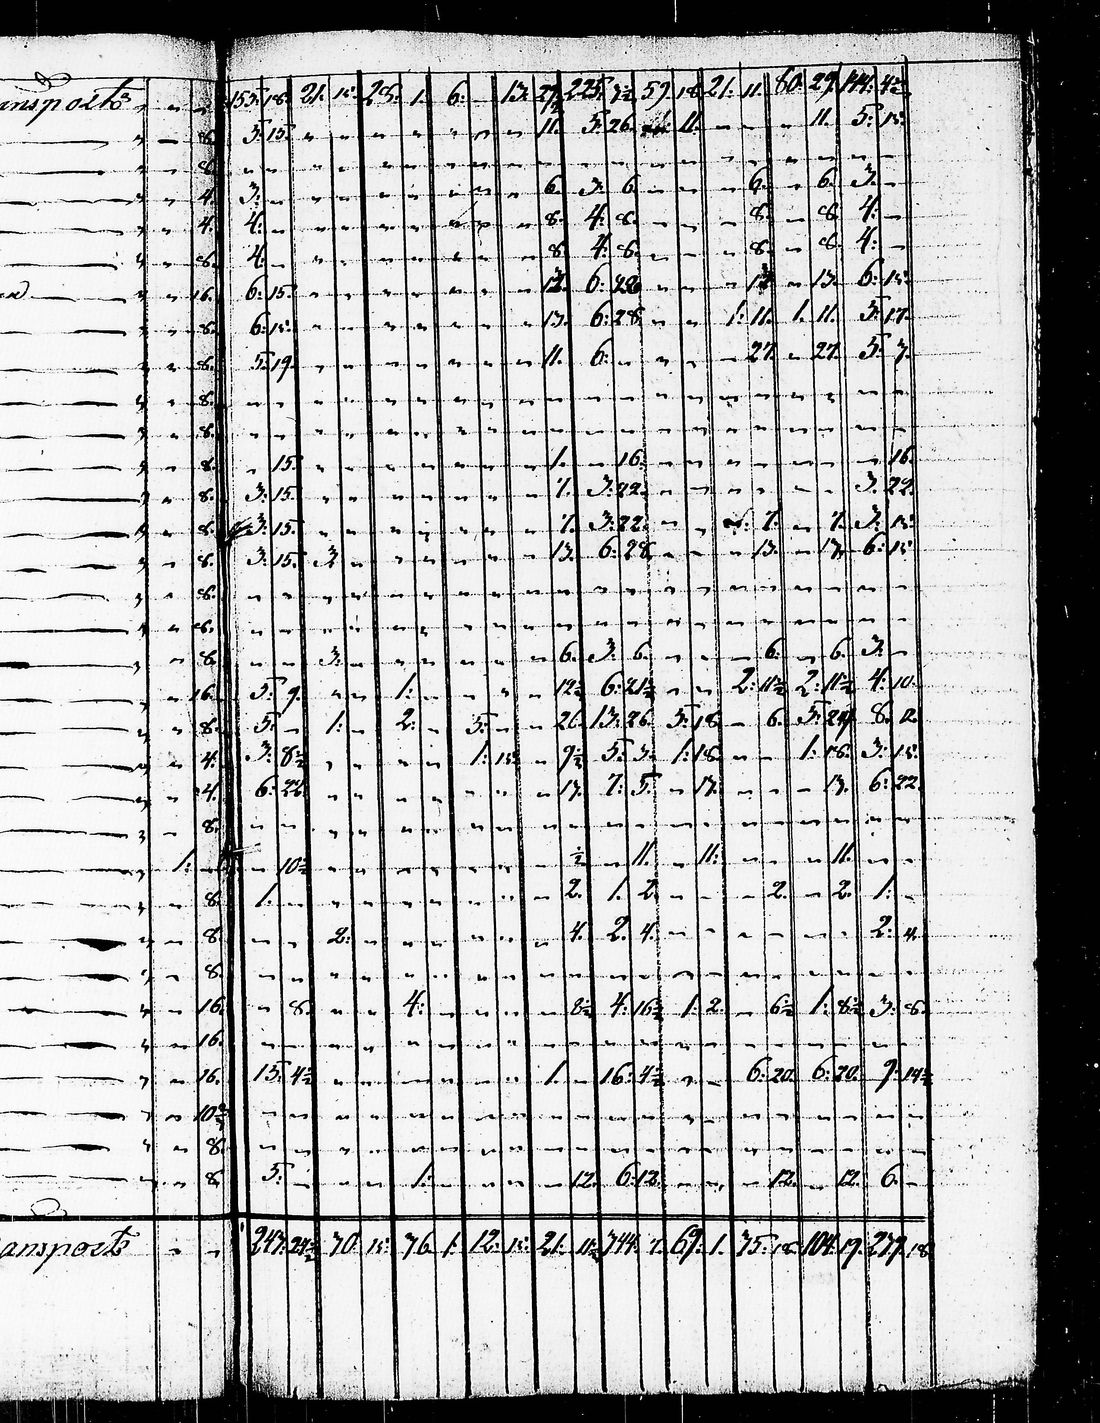 ansports " " 153: 18. 21. 15. 28. 1. 6: 13. 27½ 225. 7½ 59. 18. 21: 11. 80. 29. 144. 4½
" — 8. 5: 15. " " " " " " " " 11. 5: 26. 11. " " " 11. 5: 15.
" " 8. " " " " " " " " " " " " " " " " " "
" " 4. 3: " " " " " " " " " 6. 3: 6. " " " 6. " 6. 3: "
" " 4. 4: " " " " " " " " 8. 4: 8. " " " 8. " 8. 4: "
" " 8. 4: " " " " " " " " 8. 4: 8. " " " 8. " 8. 4: "
" " 16. 6: 15. " " " " " " " " 13. 6: 28. " " " 13. " 13. 6: 15.
" " 8. 6: 15. " " " " " " " " 13. 6: 28. " " 1: 11. 1. 11. 5: 17.
" " 8. 5: 19. " " " " " " " " 11. 6: " " " " 27. " 27. 5: 7.
" " 8. " " " " " " " " " " " " " " " " " "
" " 8. " " " " " " " " " " " " " " " " " "
" " 8. " 15. " " " " " " " " 1. " 16. " " " " " " " 16.
" " 8. 3: 15. " " " " " " " " 7. 3: 22. " " " " " " 3. 22.
" " 8. 3: 15. " " " " " " " " 7. 3: 22. " " 7. " 7. 3: 15.
" " 8. 3: 15. 3. " " " " " " " 13. 6: 28. " " " 13. " 13. 6: 15.
" " 8. " " " " " " " " " " " " " " " " " "
" " 8. " " " " " " " " " " " " " " " " " "
" 8. " " 3: " " " " " " " 6. 3: 6. " " " 6. " 6. 3: "
" 16. 5: 9. " " 1: " " " " 12½ 6: 21½ " " 2: 11½ 2: 11½ 4: 10.
" " 8. 5: " 1: " 2: " 5: " " 26. 13: 26. 5: 18. " 6. 5: 24. 8: 12.
" " 4. 3: 8½ " " " " 1: 15. " 9½ 5: 3. 1: 18. " " 1: 18. 3: 15.
" " 4. 6: 22. " " " " " " " 13. 7: 5. " 13. " " " 13. 6: 22.
" " 8. " " " " " " " " " " " " " " " " " "
" 1: " 10½ " " " " " " " ½ " 11. " 11: " " " 11. " "
" " 8. 1: " " " " " " " " 2. 1. 2. " " " 2. " 2. 1: "
" " 8. " " 2: " " " " " " 4. 2. 4. " " " " " " 2: 4.
" " 8. " " " " " " " " " " " " " " " " " "
" " 16. " 8. " " 4: " " " " 8½ 4: 16½ 1: 2. " 6½ 1: 8½ 3: 8.
" " 16. " " " " " " " " " " " " " " " " " "
" " 16. 15: 4½ " " " " " " " 1. " 16: 4½ " " 6: 20. 6: 20. 9: 14½
" " 10½ " " " " " " " " " " " " " " " " " "
" " 8. " " " " " " " " " " " " " " " " " "
" " 8. 5: " " " 1: " " " " 12. 6: 12. " " " 12. " 12. 6. "
ansports " " 247: 24½ 70. 15. 76. 1. 12: 15. 21. 11½ 344. 7. 69: 1. 75: 18. 104: 19. 277. 18.